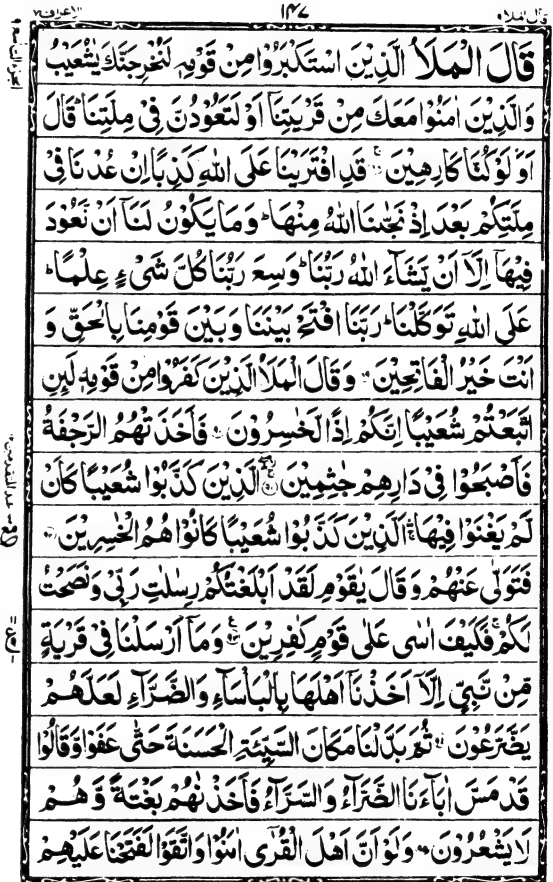 قال الملاه ١٤٧ الاعراف٧
قَالَ الْمَلَأُ الَّذِيْنَ اسْتَكْبَرُوْا مِنْ قَوْمِهٖ لَنُخْرِجَنَّكَ يٰشُعَيْبُ
وَالَّذِيْنَ اٰمَنُوْا مَعَكَ مِنْ قَرْيَتِنَآ اَوْ لَتَعُوْدُنَّ فِيْ مِلَّتِنَا ؕ قَالَ
اَوَلَوْ كُنَّا كَارِهِيْنَ قَدِ افْتَرَيْنَا عَلَى اللّٰهِ كَذِبًا اِنْ عُدْنَا فِيْ
مِلَّتِكُمْ بَعْدَ اِذْ نَجّٰىنَا اللّٰهُ مِنْهَا ؕ وَمَا يَكُوْنُ لَنَآ اَنْ نَّعُوْدَ
فِيْهَآ اِلَّآ اَنْ يَّشَآءَ اللّٰهُ رَبُّنَا ؕ وَسِعَ رَبُّنَا كُلَّ شَيْءٍ عِلْمًا ؕ
عَلَى اللّٰهِ تَوَكَّلْنَا ؕ رَبَّنَا افْتَحْ بَيْنَنَا وَبَيْنَ قَوْمِنَا بِالْحَقِّ وَ
اَنْتَ خَيْرُ الْفَاتِحِيْنَ وَقَالَ الْمَلَأُ الَّذِيْنَ كَفَرُوْا مِنْ قَوْمِهٖ لَئِنِ
اتَّبَعْتُمْ شُعَيْبًا اِنَّكُمْ اِذًا لَّخٰسِرُوْنَ فَاَخَذَتْهُمُ الرَّجْفَةُ
فَاَصْبَحُوْا فِيْ دَارِهِمْ جٰثِمِيْنَ الَّذِيْنَ كَذَّبُوْا شُعَيْبًا كَاَنْ
لَّمْ يَغْنَوْا فِيْهَا ۛ اَلَّذِيْنَ كَذَّبُوْا شُعَيْبًا كَانُوْا هُمُ الْخٰسِرِيْنَ
فَتَوَلّٰى عَنْهُمْ وَقَالَ يٰقَوْمِ لَقَدْ اَبْلَغْتُكُمْ رِسٰلٰتِ رَبِّيْ وَنَصَحْتُ
لَكُمْ ۚ فَكَيْفَ اٰسٰى عَلٰى قَوْمٍ كٰفِرِيْنَ وَمَآ اَرْسَلْنَا فِيْ قَرْيَةٍ
مِّنْ نَّبِيٍّ اِلَّآ اَخَذْنَآ اَهْلَهَا بِالْبَأْسَآءِ وَالضَّرَّآءِ لَعَلَّهُمْ
يَضَّرَّعُوْنَ ثُمَّ بَدَّلْنَا مَكَانَ السَّيِّئَةِ الْحَسَنَةَ حَتّٰى عَفَوْا وَّقَالُوْا
قَدْ مَسَّ اٰبَآءَنَا الضَّرَّآءُ وَالسَّرَّآءُ فَاَخَذْنٰهُمْ بَغْتَةً وَّهُمْ
لَا يَشْعُرُوْنَ وَلَوْ اَنَّ اَهْلَ الْقُرٰٓى اٰمَنُوْا وَاتَّقَوْا لَفَتَحْنَا عَلَيْهِمْ